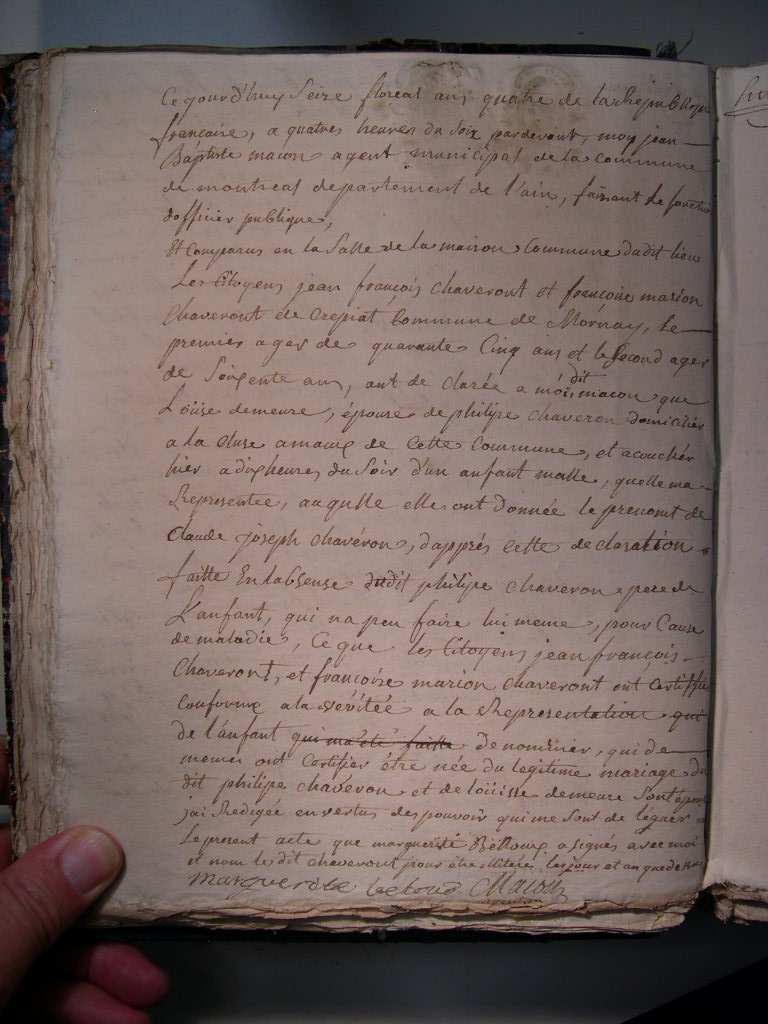 Ce jourd'huy Seize floreal an quatre de la Republique
francaise, a quatres heures du soir pardevant, moy jean
Baptiste macon agent municipal de la commune
de montreal departement de l'ain, faisant de fonction
dofficier publique,
Et Comparus en la Salle de la maison Commune dudit lieu
Les Citoyens jean françois chaveront et françoise marion
Chaveront de Crepiat Commune de Mornay, Le
premier ager de quarante Cinq ans et le Second ager
de Soixente ans, ont de clarée a moi dit macon que
Loüise demeure, épouse de philipe chaveron domicilier
a la Cluse a de Cette Commune, et acouchér
hier a dix heures du Soir d'un anfant malle, quelle ma
Representée, auqulle elle ont Donnée le prenomt de
Claude joseph chavéron, d'apprés Cette de claration
faitte En labsense dudit philipe chaveron pere de
L'anfant, qui na peu faire lui meme, pour Cause
de maladie, Ce que les Citoyens jean françois
Chaveront, et françoise marion chaveront ont Certifie
Conforme a la véritée a la Representation qui
de l'anfant qui ma été faitte denommér, qui de
memes ont Certifier étre née du legitime mariage du
dit philipe chaveron et de loüisse demeure Sont
jai Redigée en vertus des pouvoir qui me Sont de légués
Le present acte que marguerite Belloud a signés avec moi
et nom le dit chaveront pour étre les jour et an que de
marguerite Macon